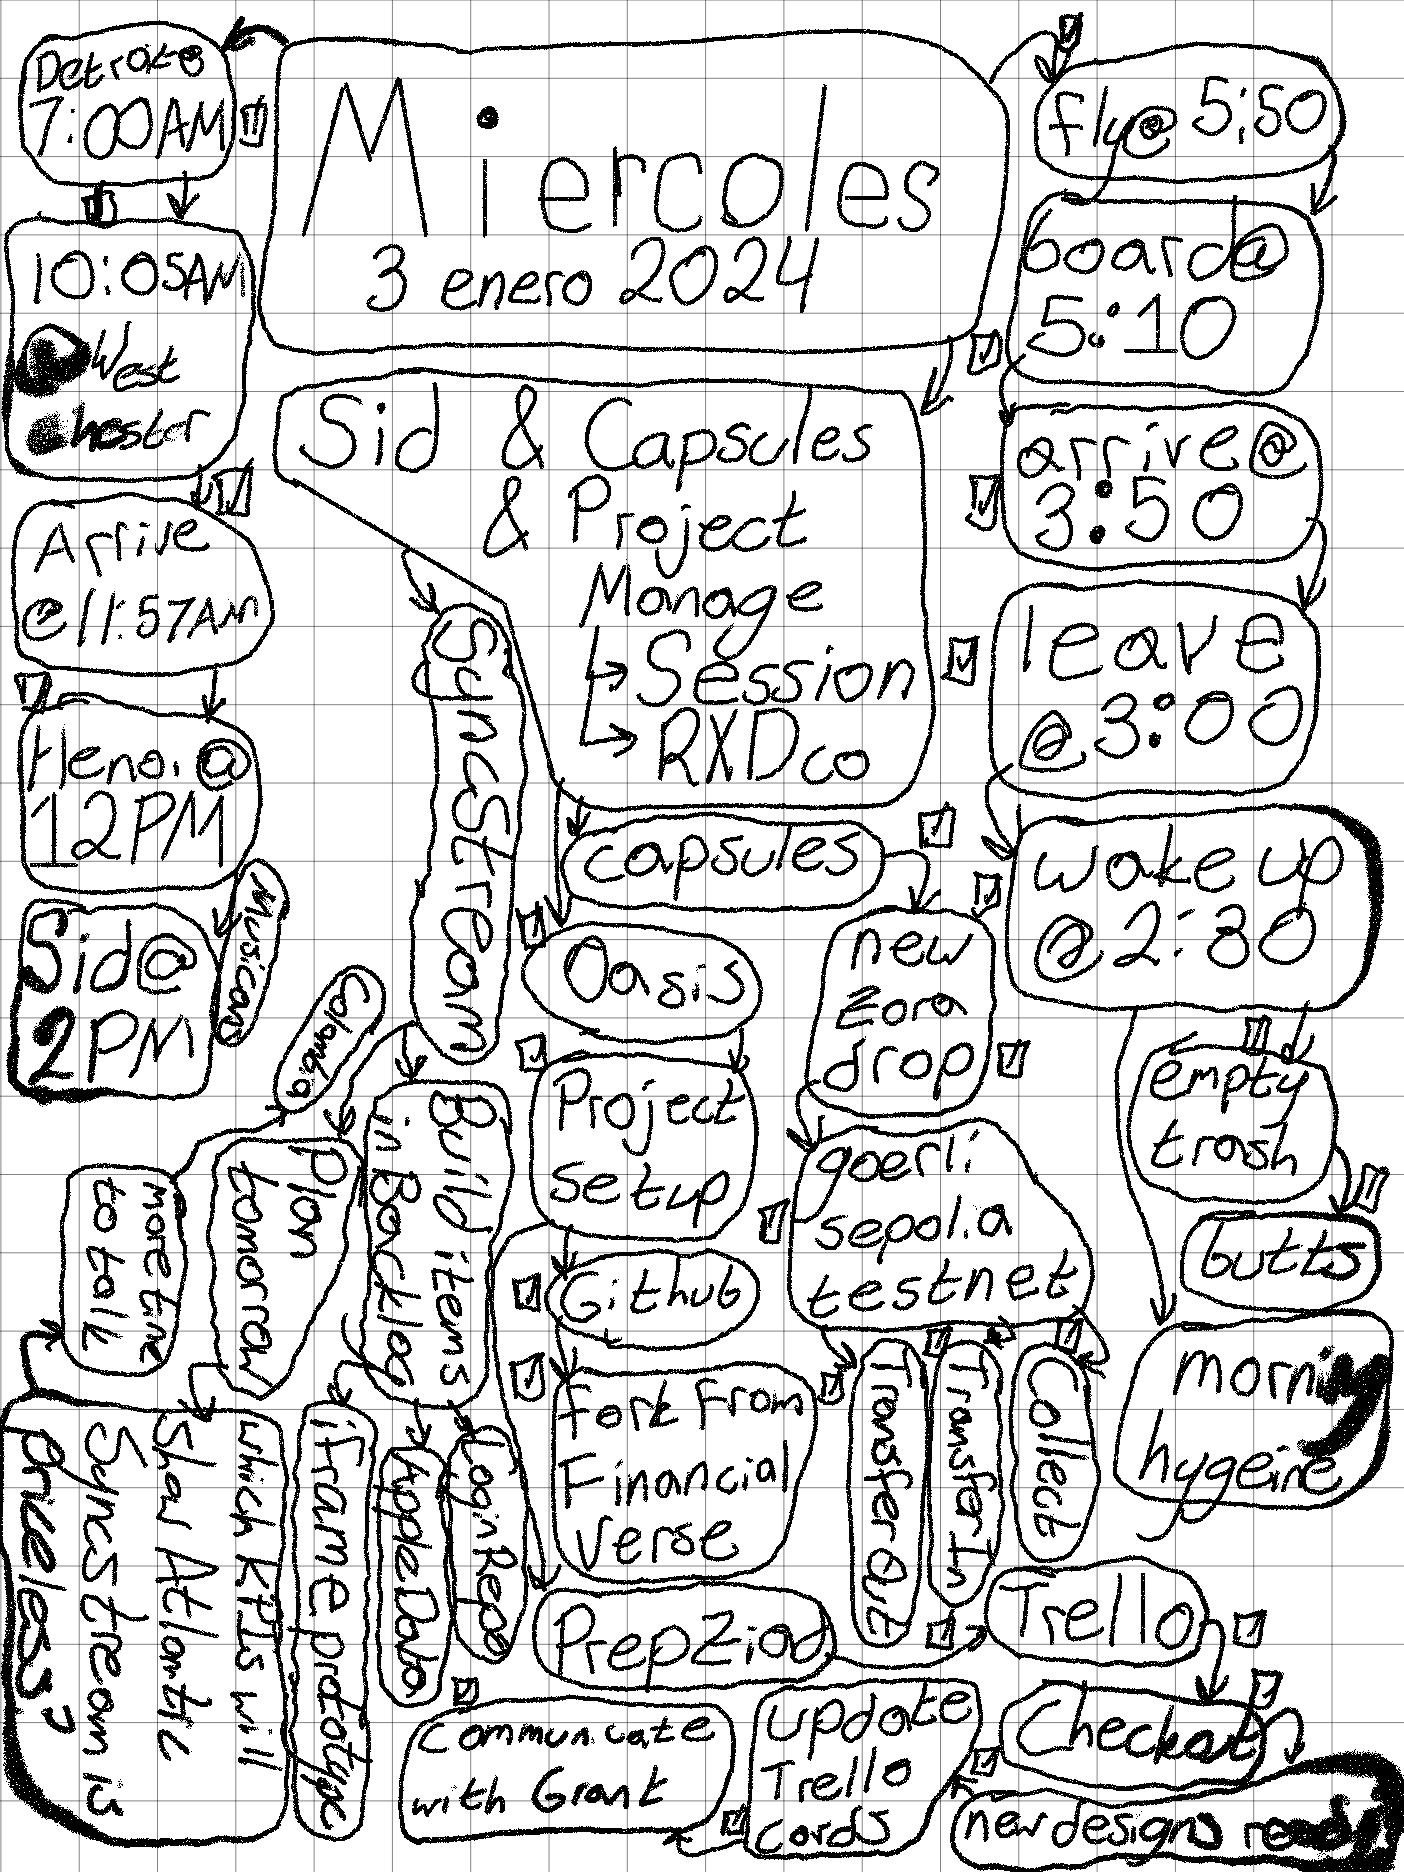 Detroit@
7:00AM
10:05AM
West
Chester
Arrive
@11:57AM
Heno. @
12PM
Sid@
2PM
Musicans
Miercoles
3 enero 2024
Sid & Capsules
& Project
Manage
Session
RXDco
fly@ 5:50
board@
5:10
arrive@
3:50
leave
@3:00
wake up
@2:30
empty
trash
butts
morning
hygeine
SyncStream
Colombia
more time
to talk
Plan
tomorrow
Build items
in Backlog
which KPIs will
show Atlantic
SyncStream is
priceless?
iframe prototype
Apple Data
Login Repo
capsules
Oasis
Project
Setup
Github
fork from
Financial
Verse
Prep Ziod
new
Zora
drop
goerli
sepolia
testnet
Transfer Out
Transfer In
Collect
Trello
Checkout
new designs ready
update
Trello
cards
communicate
with Grant